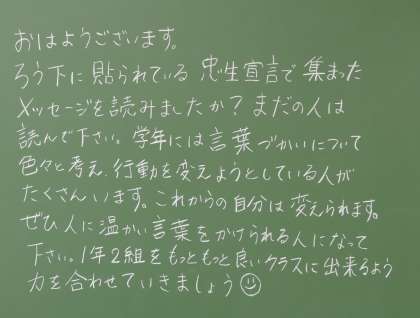 おはようございます。
ろう下に貼られている 忠生宣言で 集まった
メッセージを読みましたか？まだの人は
読んで下さい。学年には言葉づかいについて
色々と考え、行動を変えようとしている人が
たくさんいます。これからの自分は変えられます。
ぜひ人に温かい言葉をかけられる人になって
下さい。1年2組をもっともっと良いクラスに出来るよう
力を合わせていきましょう